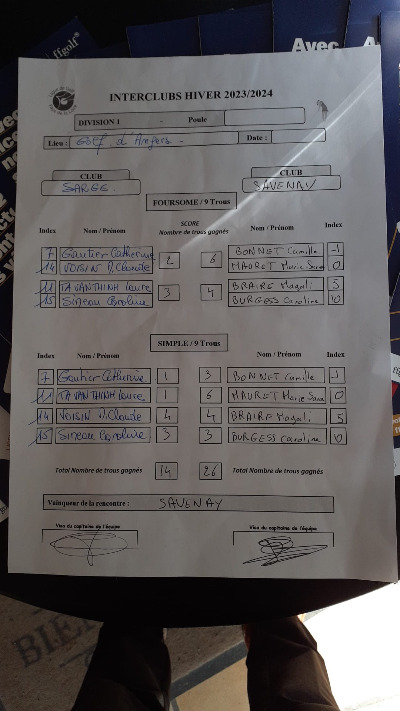 ffgolf
Avec
INTERCLUBS HIVER 2023/2024
DIVISION 1 - Poule
Lieu : Golf d'Angers - Date :
CLUB CLUB
SARGE SAVENAY
FOURSOME / 9 Trous
SCORE
Index Nom / Prénom Nombre de trous gagnés Nom / Prénom Index
7 Gautier Catherine 2 6 BONNET Camille -1
14 VOISIN M.Claude MAURET Marie 0
11 TAVANTHINH Laure 3 4 BRAIRE Magali 5
15 Simeau Caroline BURGESS Caroline 10
SIMPLE / 9 Trous
Index Nom / Prénom Nom / Prénom Index
7 Gautier Catherine 1 3 BONNET Camille -1
11 TAVANTHINH Laure 1 6 MAURET Marie 0
14 VOISIN M.Claude 4 4 BRAIRE Magali 5
15 Simeau Caroline 3 3 BURGESS Caroline 10
Total Nombre de trous gagnés 14 26 Total Nombre de trous gagnés
Vainqueur de la rencontre : SAVENAY
Visa du capitaine de l'équipe Visa du capitaine de l'équipe